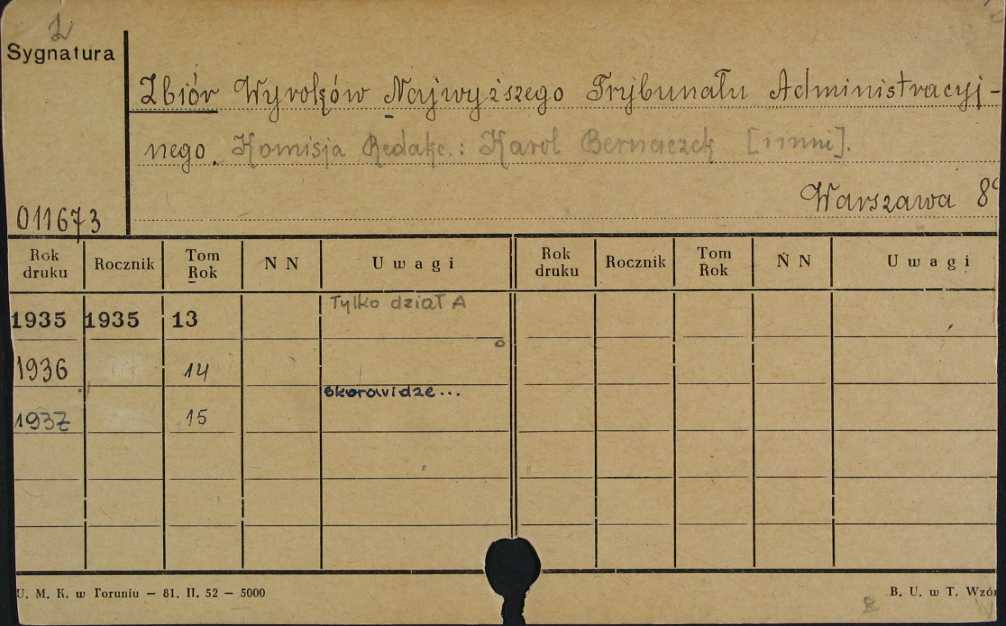 Sygnatura
Zbiór Wyroków Najwyższego Trybunału Administracyj-
nego. Komisja Redakc.: Karol Bernaczek [i inni].
Warszawa 8°
011673
Rok druku Rocznik Tom Rok N N Uwagi Rok druku Rocznik Tom Rok N N Uwagi
1935 1935 13 Tylko dział A
1936 14
1937 15 skorowidze...
U. M. K. w Toruniu — 81. II. 52 — 5000
B. U. w T. Wzór